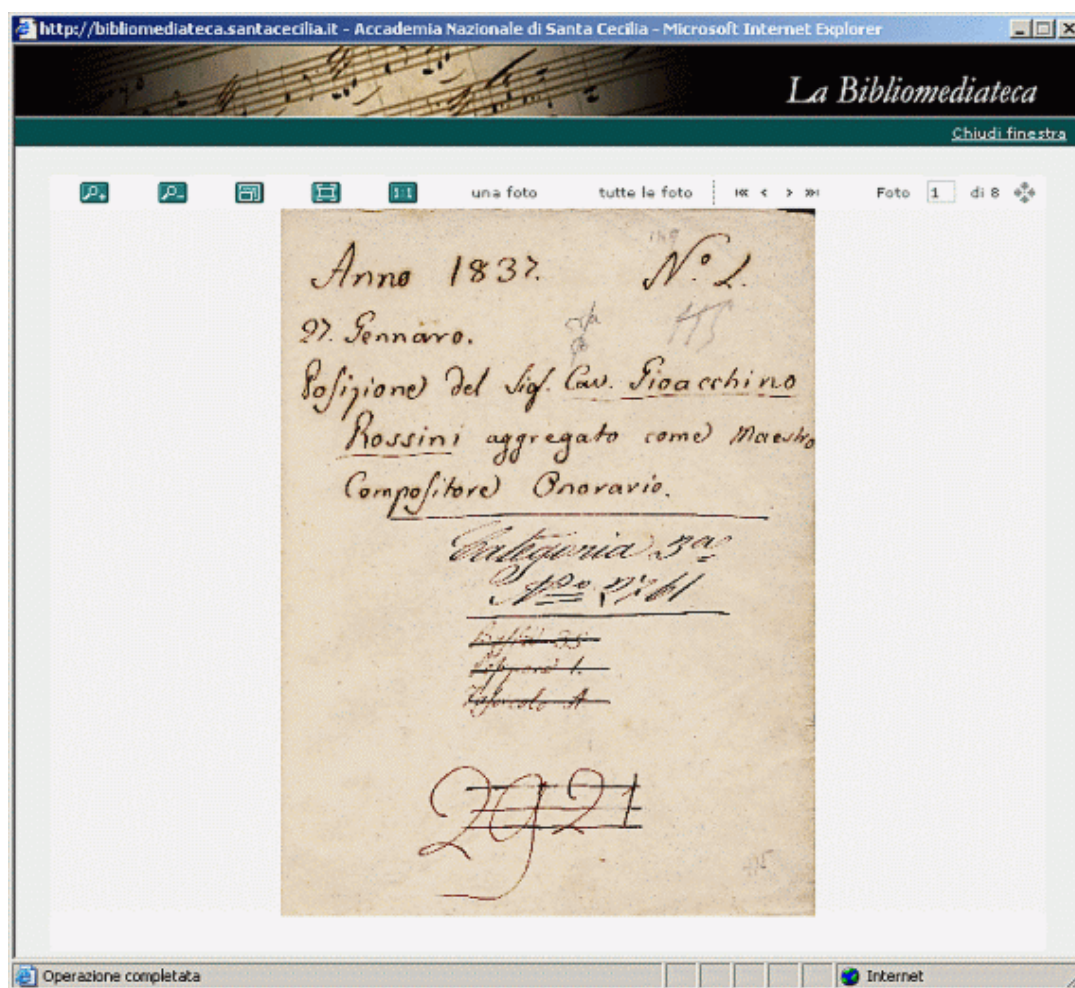 http://bibliomediateca.santacecilia.it - Accademia Nazionale di Santa Cecilia - Microsoft Internet Explorer
La Bibliomediateca
Chiudi finestra
1:1 una foto tutte le foto Foto 1 di 8
Anno 1837. N.o 2.
27. Gennaro.
Posizione del Sig. Cav. Gioacchino
Rossini aggregato come Maestro
Compositore Onorario.
Categoria 3a
Posizione 1.
Fascicolo A
2921
Operazione completata Internet